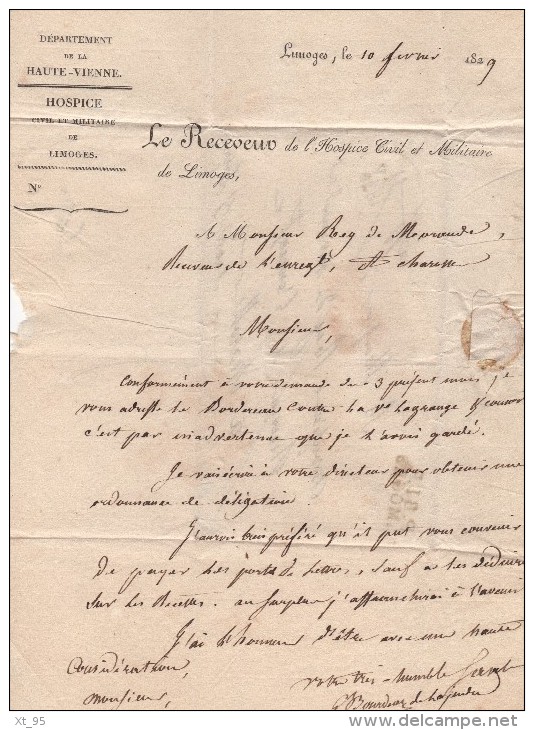 DÉPARTEMENT
DE LA
HAUTE-VIENNE.
HOSPICE
CIVIL ET MILITAIRE
DE
LIMOGES.
N°
Limoges, le 10 février 1829
Le Receveur de l'Hospice Civil et Militaire
de Limoges,
A Monsieur Rey de
Receveur de l'enregt,
Monsieur,
Conformément à votre demande du 3 présent mois, je
vous adresse le Bordereau contre la ve Lagrange &
c'est par inadvertence que je l'avois gardé.
Je vais écrire à votre directeur pour obtenir une
ordonnance de délégation.
J'aurois bien préféré qu'il put vous convenir
de payer les ports de lettres, sauf a les déduire
sur les Recettes. au surplus j'affranchirai à l'avenir
J'ai l'honneur d'être avec une haute
Considération,
Monsieur,
votre très-humble
Xt_95
www.delcampe.net